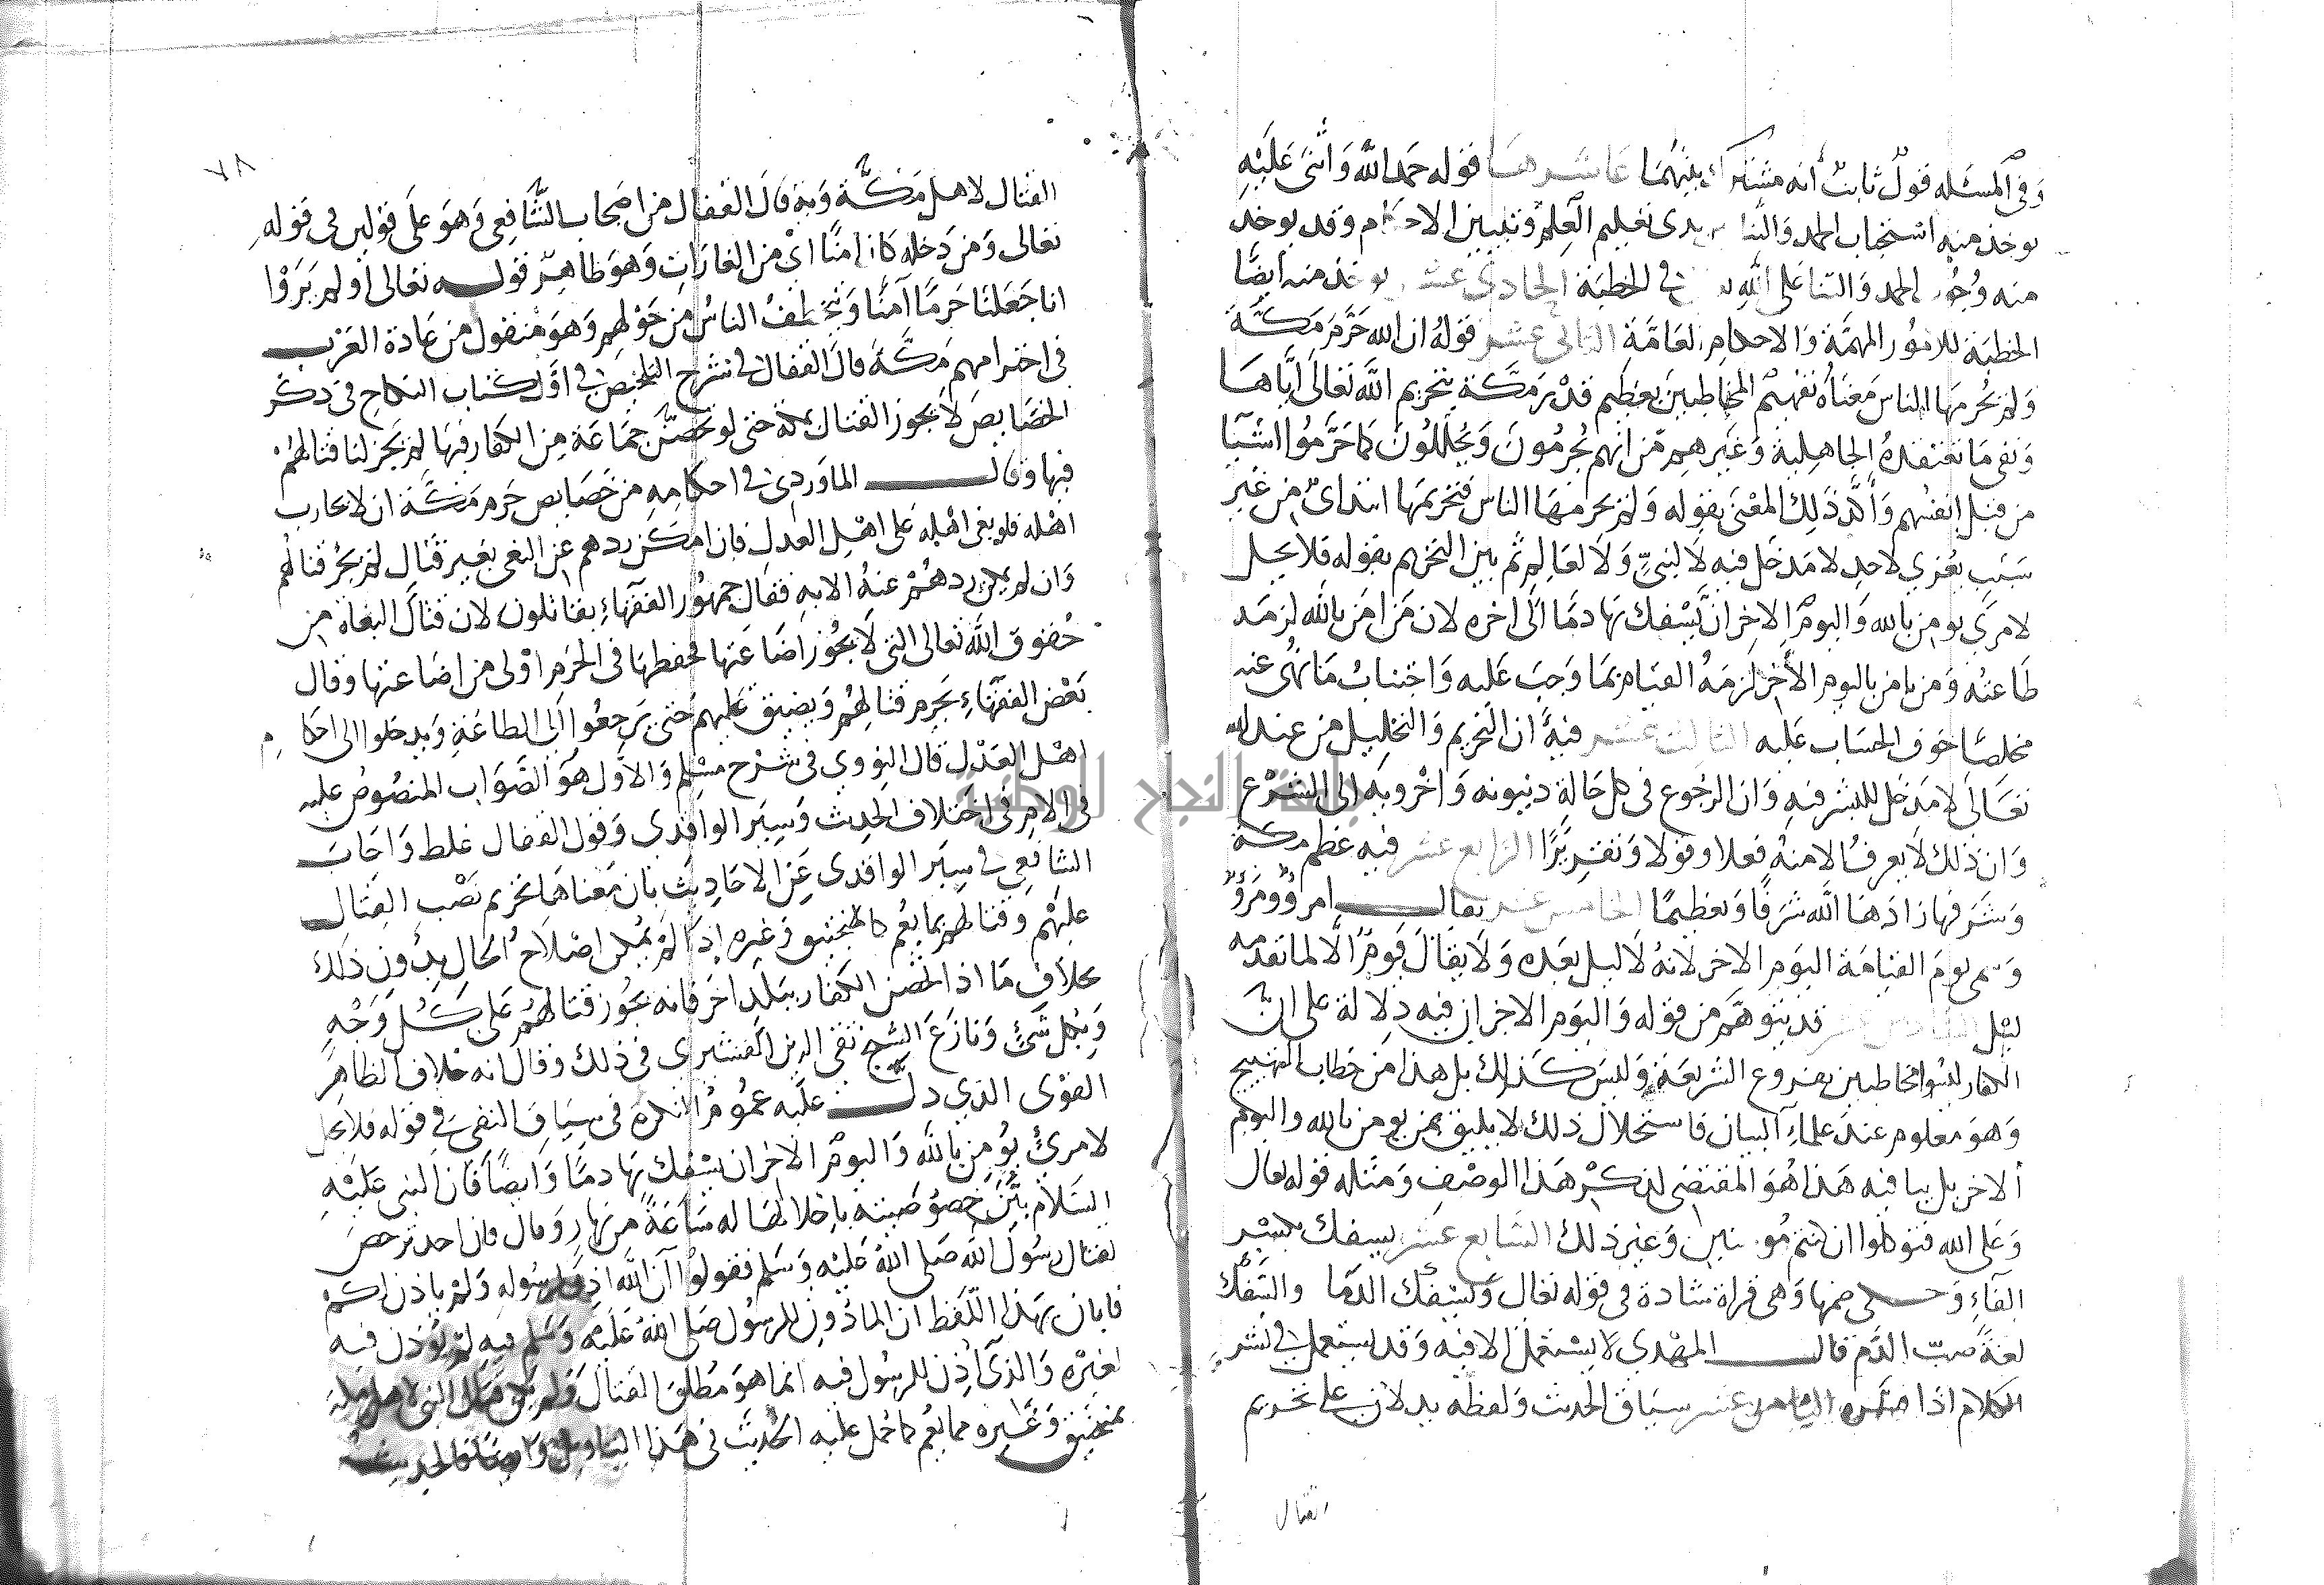 وفى المسئله قول ثابت أنه مشترك بينهما عاشرها قوله حمد الله وأثنى عليه
يوخذ منه استحباب الحمد والثنا بين يدى تعليم العلم وتبيين الاحكام وقد يوخذ
منه وجوب الحمد والثنا على الله تعالى في الخطبة الحادي عشر يوخذ منه أيضًا
الخطبة للامور المهمة والاحكام العامة الثاني عشر قوله ان الله حرم مكة
ولم يحرمها الناس معناه تفهيم المخاطبين بعظيم قدر مكة بتحريم الله تعالى اياها
ونفى ما تعتقده الجاهلية وغيرهم من انهم يحرمون ويحللون كما حرموا اشيا
من قبل انفسهم وأكد ذلك المعنى بقوله ولم يحرمها الناس فتحريمها ابتداى من غير
سبب يعزي لاحد لا مدخل فيه لا لنبي ولا لعالم ثم بين التحريم بقوله فلا يحل
لامرى يومن بالله واليوم الاخر ان يسفك بها دما الى اخره لان من امن بالله لزمه
طاعته ومن امن باليوم الأخر لزمه القيام بما وجب عليه واجتناب ما نهى عنه
مخلصا خوف الحساب عليه الثالث عشر فيه ان التحريم والتحليل من عند الله
تعالى لا مدخل للبشر فيه وان الرجوع فى كل حالة دنيويه واخرويه الى الشرع
وان ذلك لا يعرف الا منه فعلا وقولا وتقريرًا الرابع عشر فيه عظم مكة
وشرفها زادها الله شرفًا وتعظيمًا الخامس عشر يقال امرؤ ومرؤ
وسمى يوم القيامة اليوم الاخر لانه لا ليل بعده ولا يقال يوم الا لما تقدمه
ليل السادس عشر قد يتوهم من قوله واليوم الاخر ان فيه دلالة على ان
الكفار ليسوا مخاطبين بفروع الشريعة وليس كذلك بل هذا من خطاب التهييج
وهو معلوم عند علماء البيان فاستحلال ذلك لا يليق بمن يومن بالله واليوم
الاخر بل ينافيه هذا هو المقتضى لذكر هذا الوصف ومثله قوله تعالى
وعلى الله فتوكلوا ان كنتم مومنين وغير ذلك السابع عشر يسفك بكسر
الفاء وحكي ضمها وهى قراة شاذة فى قوله تعالى ويسفك الدما والسفك
لغة صب الدم قال المهدي لا يستعمل الا فيه وقد يستعمل في نشر
الكلام اذا نشره الثامن عشر سياق الحديث ولفظه يدلان على تحريم
القتال
٧٨
القتال لاهل مكة وبه قال القفال من اصحاب الشافعي وهو على قولين فى قوله
تعالى ومن دخله كان امنًا اى من الغارات وهو ظاهر قوله تعالى اولم يروا
انا جعلنا حرمًا آمنًا ويتخطف الناس من حولهم وهو منقول من عادة العرب
فى احترامهم مكة قال القفال فى شرح التلخيص في اول كتاب النكاح فى ذكر
الخصايص لا يجوز القتال بمكة حتى لو تحصن جماعة من الكفار فيها لم يجز لنا قتالهم
فيها وقال الماوردي في احكامه من خصايص حرم مكة ان لا يحارب
اهله فلو بغى اهله على اهل العدل فان امكن ردهم عن البغى بغير قتال لم يجز قتالهم
وان لم يمكن ردهم عنه الا به فقال جمهور الفقهاء يقاتلون لان قتال البغاة من
حقوق الله تعالى التى لا يجوز اضاعتها فحفظها فى الحرم اولى من اضاعتها وقال
بعض الفقهاء يحرم قتالهم ويضيق عليهم حتى يرجعوا الى الطاعة ويدخلوا الى احكام
اهل العدل قال النووي فى شرح مسلم والاول هو الصواب المنصوص عليه
فى الام فى اختلاف الحديث وسير الواقدى وقول القفال غلط واجاب
الشافعي في سير الواقدى عن الاحاديث بان معناها تحريم نصب القتال
عليهم وقتالهم بما يعم كالمنجنيق وغيره إذا لم يمكن اصلاح الحال بدون ذلك
بخلاف ما اذا تحصن الكفار ببلد اخر فانه يجوز قتالهم على كل وجه
وبكل شئ ونازع الشيخ تقى الدين القشيرى فى ذلك وقال انه خلاف الظاهر
القوى الذي دل عليه عموم النكرة فى سياق النفى في قوله فلا يحل
لامرئ يؤمن بالله واليوم الاخر ان يسفك بها دمًا وايضًا فان النبى عليه
السلام بين خصوصيته باحلالها له ساعة من نهار وقال فان احد ترخص
لقتال رسول الله صلى الله عليه وسلم فقولوا ان الله اذن لرسوله ولم ياذن لكم
فابان بهذا اللفظ ان الماذون للرسول صلى الله عليه وسلم فيه لم يؤذن فيه
لغيره والذى أذن للرسول فيه انما هو مطلق القتال ولم يكن قتال النبى لاهل مكة
بمنجنيق وغيره مما يعم كما حمل عليه الحديث فى هذا التاويل وايضا فالحديث
جامعة النجاح الوطنية